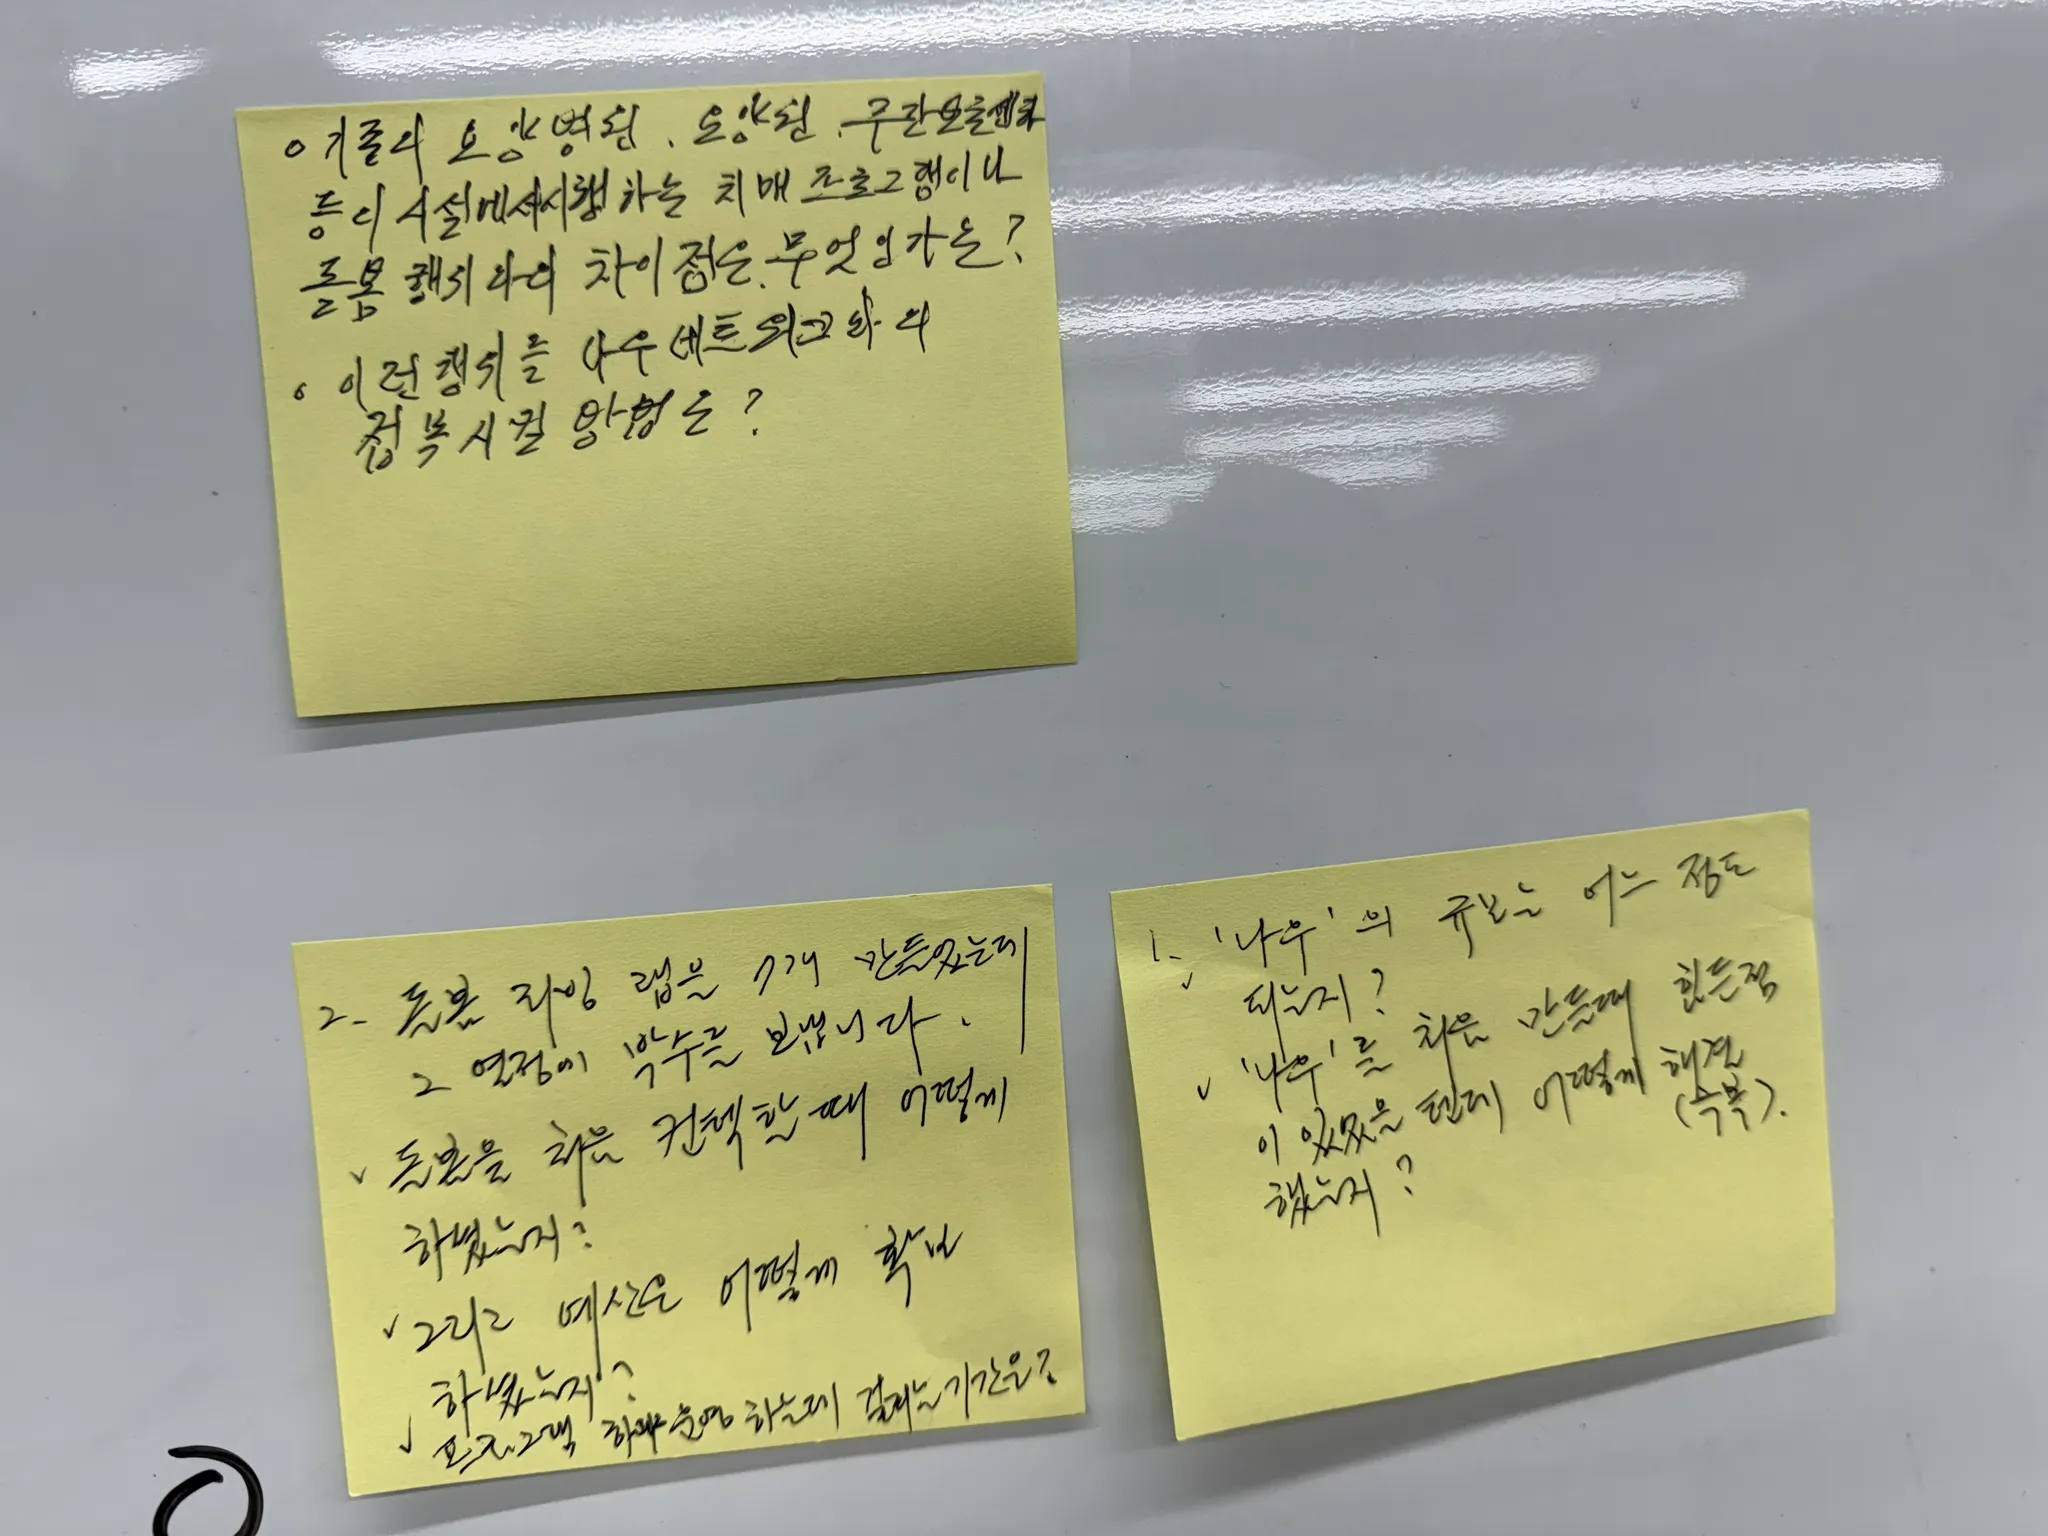 o 기존의 요양병원, 요양원, 주간보호센타
등의 시설에서 시행하는 치매 프로그램이나
돌봄 행위와의 차이점은 무엇인가는?
o 이런 행위를 나우 네트워크와의
접목시킬 방형은?
2- 돌봄 리빙 랩을 7개 만들었는데
그 열정에 박수를 보냅니다.
✓ 돌봄을 처음 컨텍할 때 어떻게
하셨는지?
✓ 그리고 예산은 어떻게 확보
하셨는지?
✓ 프로그램 하나 운영하는데 걸리는 기간은?
1- ✓ '나우'의 규모는 어느 정도
되는지?
✓ '나우'를 처음 만들때 힘든점
이 있었을 텐데 어떻게 해결
(극복).
했는지?